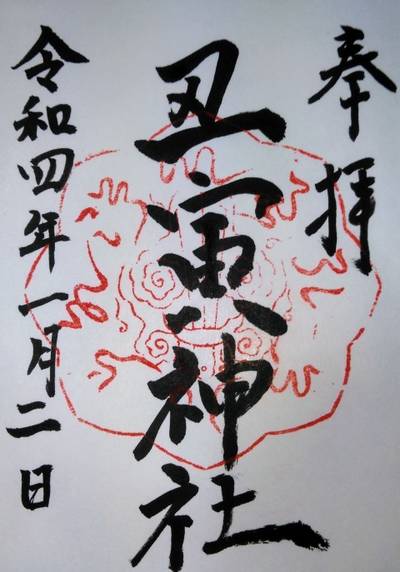 奉拝
丑寅神社
令和四年一月二日